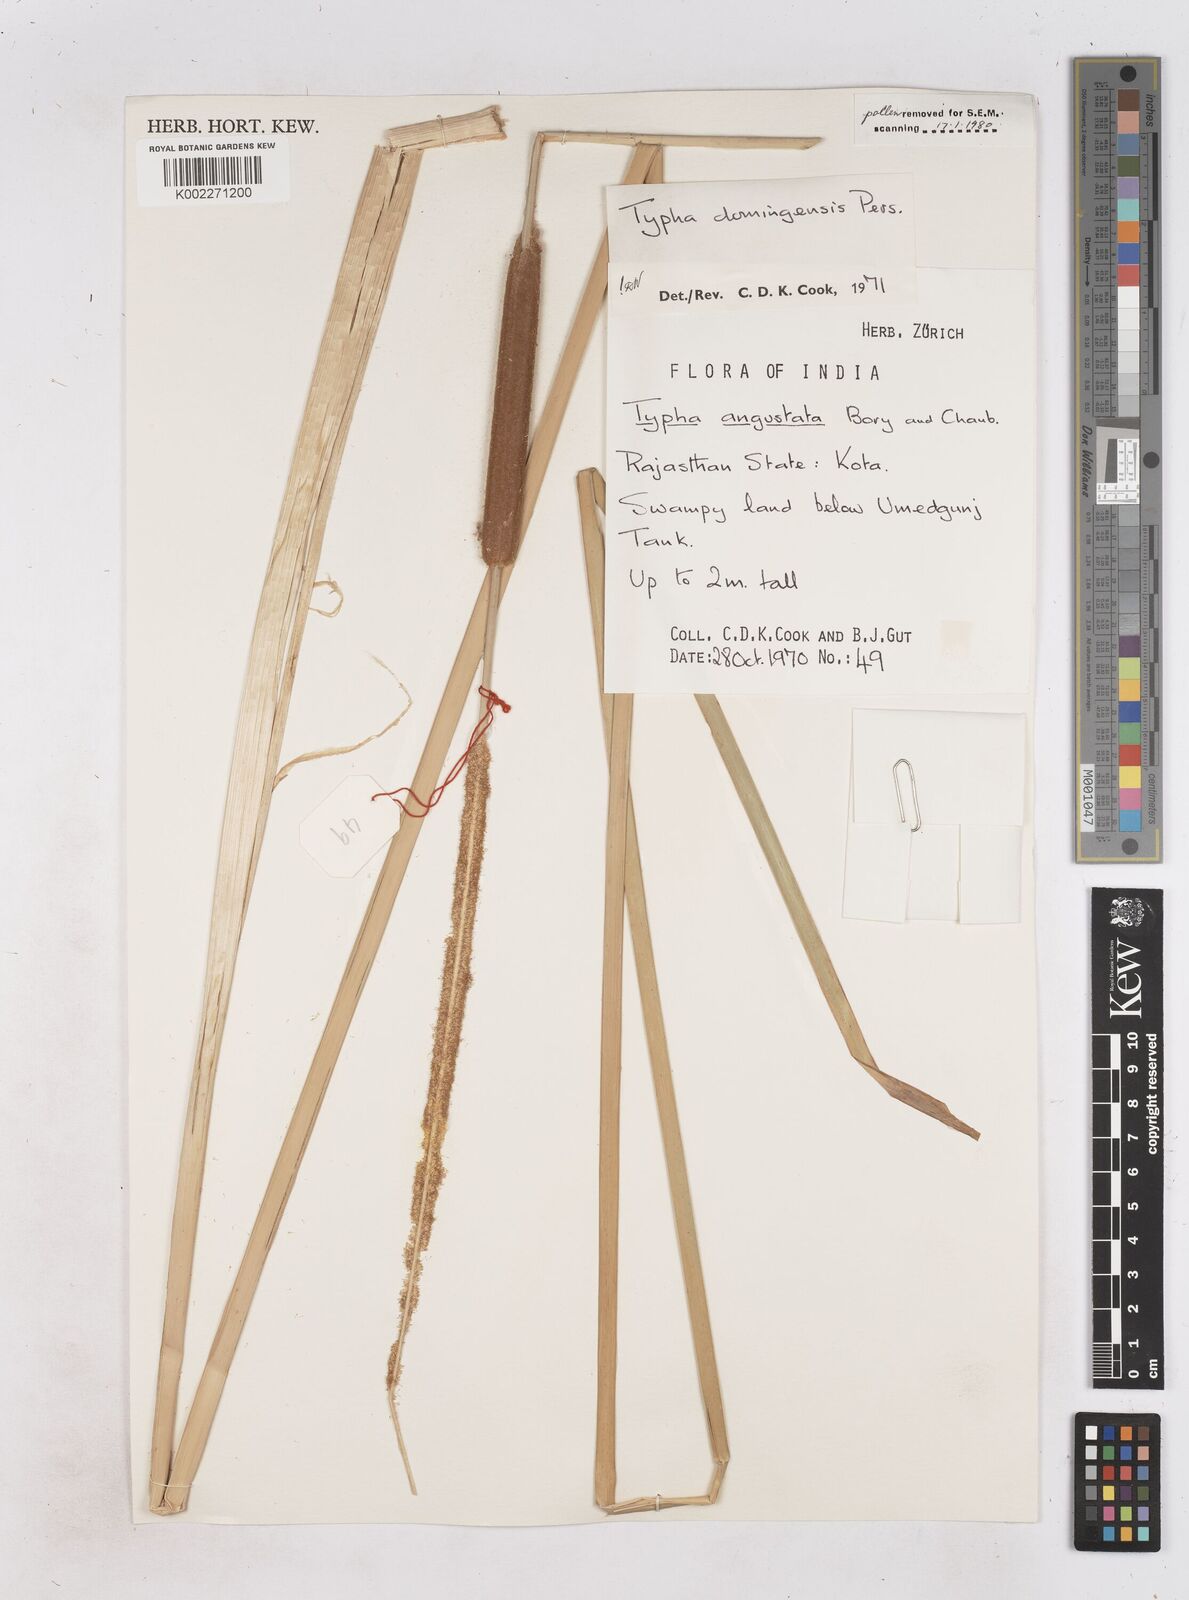 HERB. HORT. KEW.
ROYAL BOTANIC GARDENS KEW
K002271200
pollen removed for S.E.M.
scanning 17.1.1980
Typha domingensis Pers.
Det./Rev. C. D. K. Cook, 1971
HERB. ZÜRICH
FLORA OF INDIA
Typha angustata Bory and Chaub.
Rajasthan State: Kota.
Swampy land below Umedgunj
Tank.
Up to 2m. tall
COLL. C.D.K.COOK AND B.J.GUT
DATE: 28 Oct. 1970 NO.: 49
49
inches
Density
Don Williams
M001047
centimeters
Royal Botanic Gardens
Kew
0 1 2 3 4 5 6 7 8 9 10
cm
copyright reserved